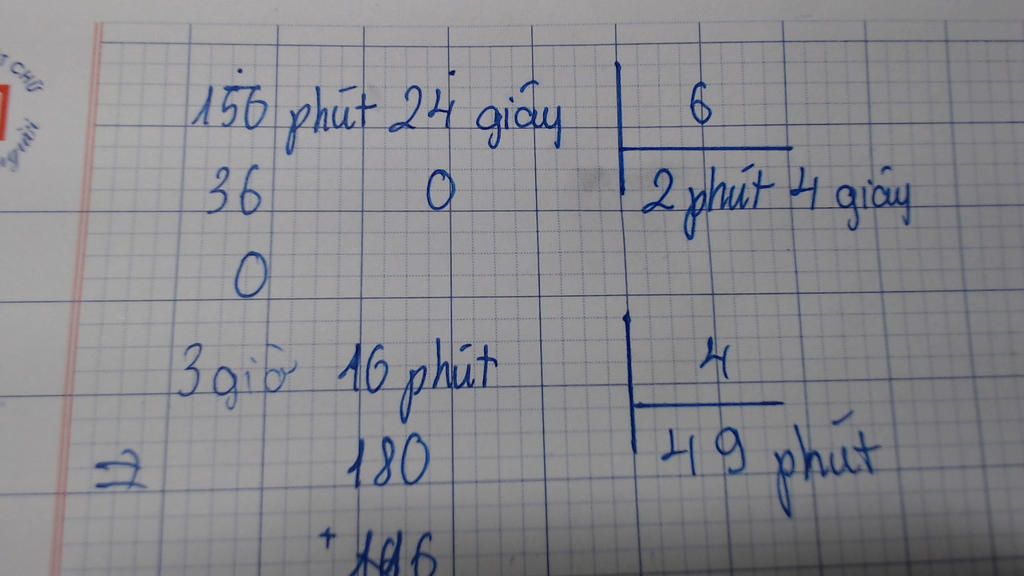 156 phút 24 giây 6
36 0 2 phút 4 giây
0
3 giờ 16 phút 4
=> 180 49 phút
+